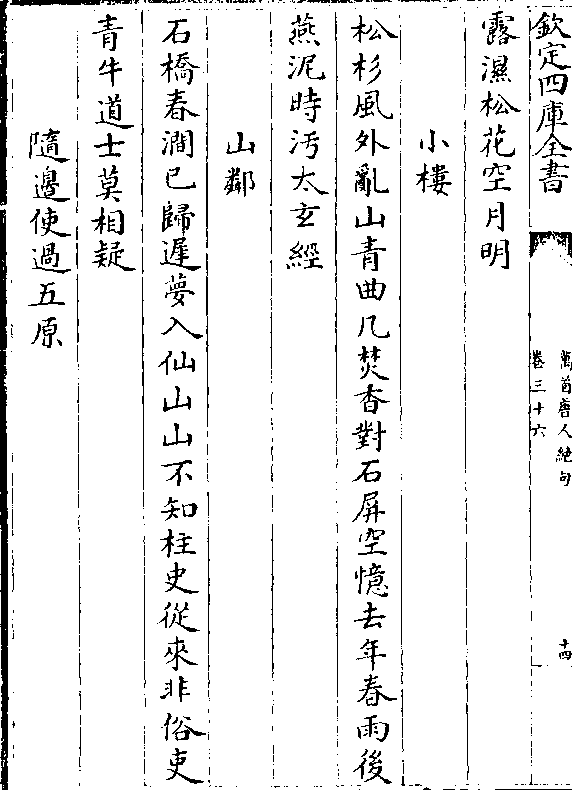 欽定四庫全書
萬首唐人絶句
卷三十六
十四
露濕松花空月明
小樓
松杉風外亂山青曲几焚香對石屏空憶去年春雨後
燕泥時汚太玄經
山鄰
石橋春澗已歸遲夢入仙山山不知柱史從來非俗吏
青牛道士莫相疑
隨邊使過五原